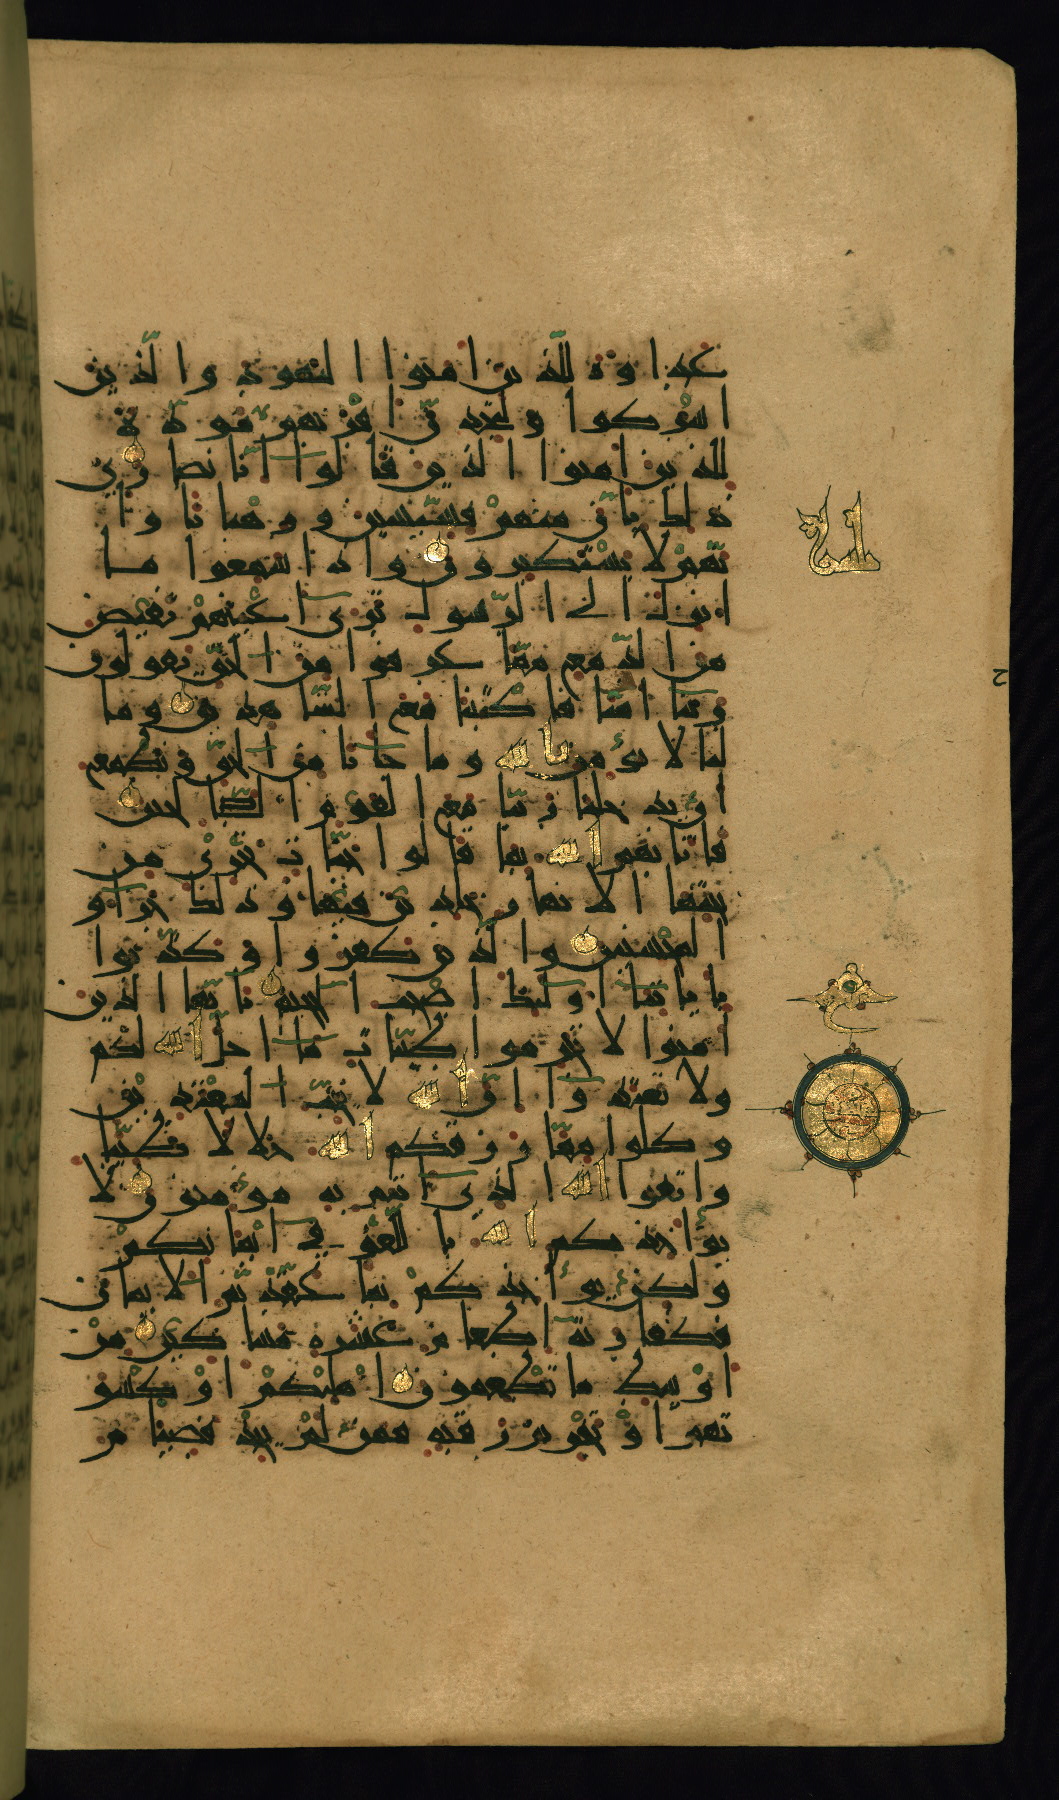 عداوة للذين امنوا اليهود والذين
اشركوا ولتجدن اقربهم مودة
للذين امنوا الذين قالوا انا نصارى
ذلك بان منهم قسيسين ورهبانا وا
نهم لا يستكبرون واذا سمعوا ما
انزل الى الرسول ترى اعينهم تفيض
من الدمع مما عرفوا من الحق يقولون
ربنا امنا فاكتبنا مع الشاهدين وما
لنا لا نؤمن بالله وما جانا من الحق ونطمع
ان يدخلنا ربنا مع القوم الصالحين
فاثابهم الله بما قالوا جنات تجرى من
تحتها الانهار خلدين فيها وذلك جزاو
المحسنين والذين كفروا وكذبوا
باياتنا اوليك اصحب الجحيم يايها الذين
امنوا لا تحرموا طيبات ما احل الله لكم
ولا تعتدوا ان الله لا يحب المعتدين
وكلوا مما رزقكم الله حلالا طيبا
واتقوا الله الذى انتم به مؤمنون لا
يؤاخذكم الله باللغو فى ايمانكم
ولكن يؤاخذكم بما عقدتم الايمان
فكفارته اطعام عشرة مساكين من
اوسط ما تطعمون اهليكم او كسو
تهم او تحرير رقبة فمن لم يجد فصيام